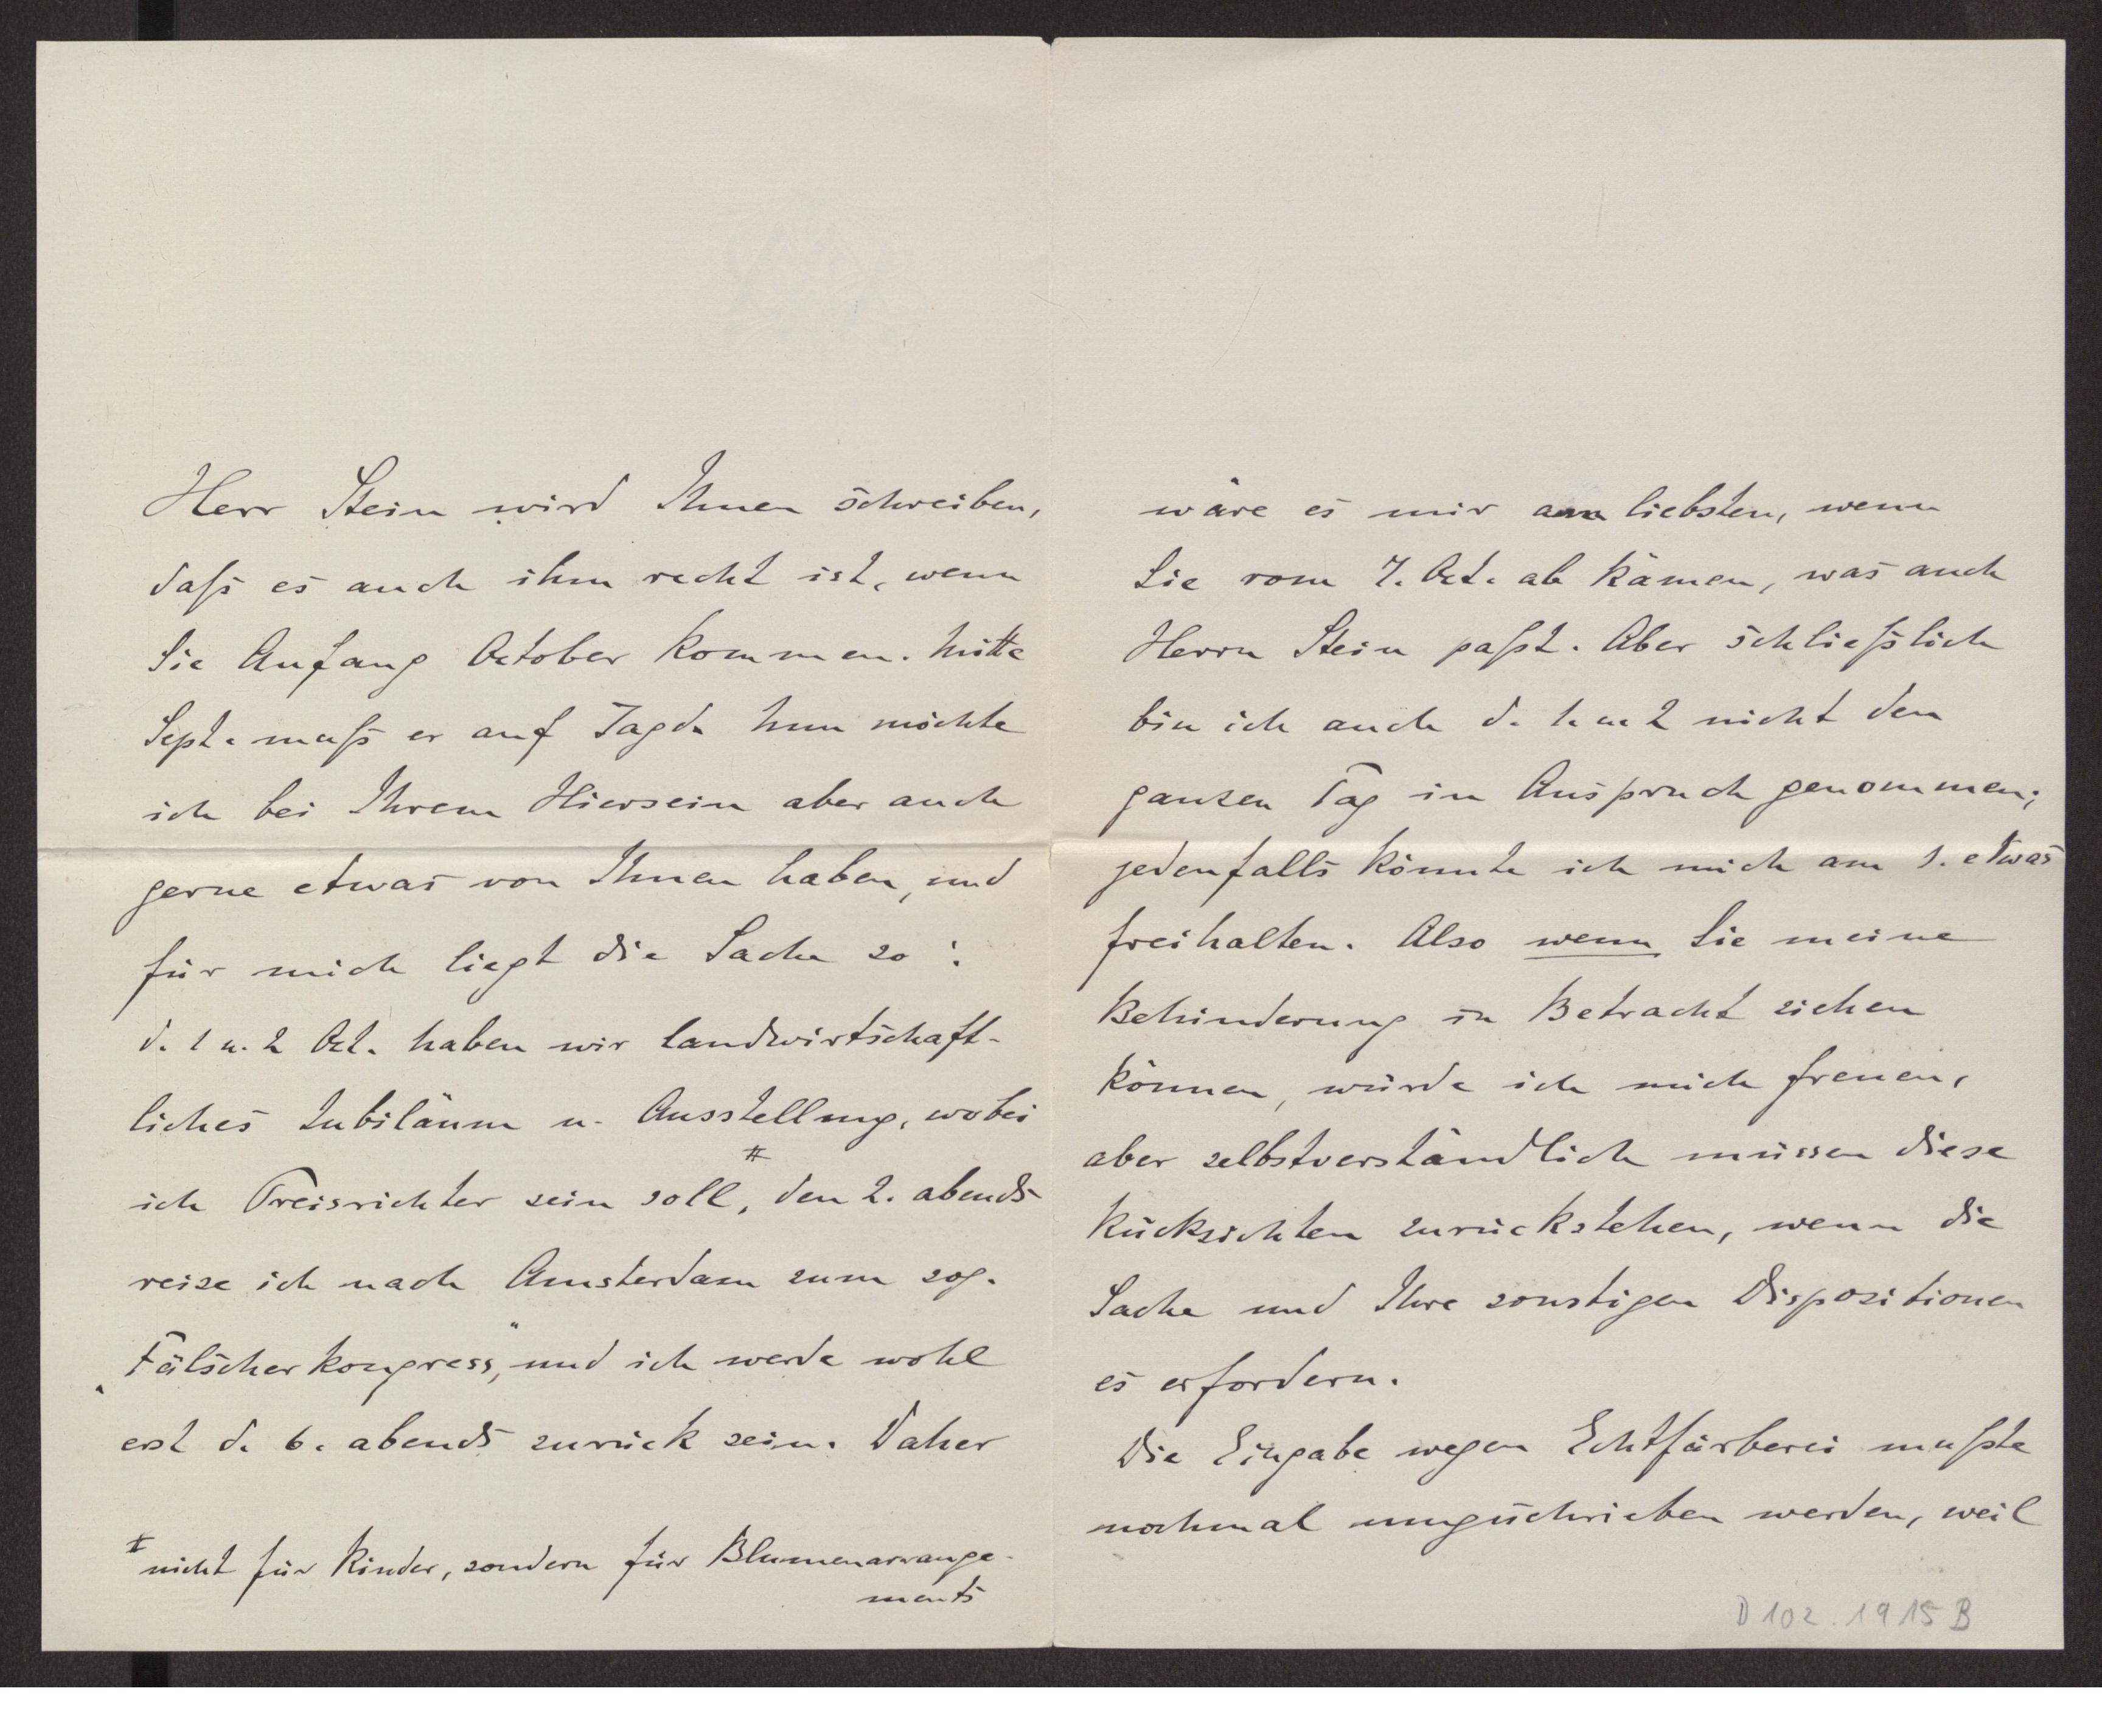 Herr Stein wird Ihnen schreiben,
daß es auch ihm recht ist, wenn
Sie Anfang October kommen. Mitte
Sept. muß er auf Jagd. Nun möchte
ich bei Ihrem Hiersein aber auch
gerne etwas von Ihnen haben, und
für mich liegt die Sache so:
d. 1 u. 2 Oct. haben wir landwirtschaft-
liches Jubiläum u. Ausstellung, wobei
ich Preisrichter sein soll #, den 2. abends
reise ich nach Amsterdam zum sog.
„Fälscherkongress“, und ich werde wohl
erst d. 6. abends zurück sein. Daher
# nicht für Kinder, sondern für Blumenarrange-
ments
wäre es mir am liebsten, wenn
Sie vom 7. Oct. ab kämen, was auch
Herrn Stein paßt. Aber schließlich
bin ich auch d. 1. u. 2 nicht den
ganzen Tag in Anspruch genommen;
jedenfalls könnte ich mich am 1. etwas
freihalten. Also wenn Sie meine
Behinderung in Betracht ziehen
können, würde ich mich freuen,
aber selbstverständlich müssen diese
Rücksichten zurückstehen, wenn die
Sache und Ihre sonstigen Dispositionen
es erfordern.
Die Eingabe wegen Echtfärberei mußte
nochmal umgeschrieben werden, weil
D 102.1915 B